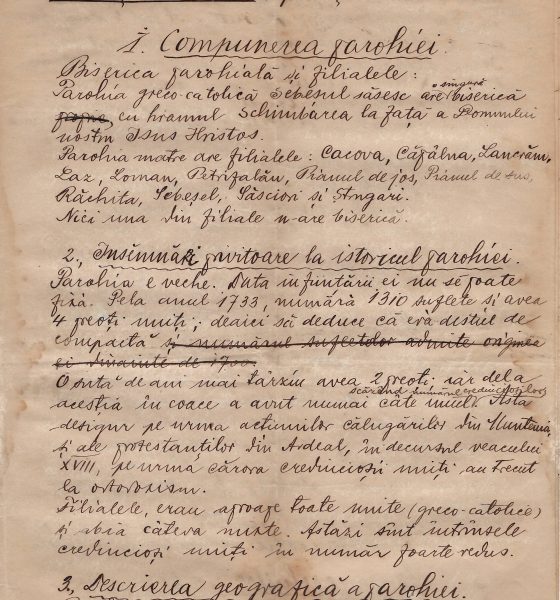 1. Compunerea parohiei.
Biserica parohială și filialele:
Parohia greco-catolică Sebeșul săsesc are o singură biserică
proprie, cu hramul Schimbarea la față a Domnului
nostru Isus Hristos.
Parohia matre are filialele: Cacova, Căpâlna, Lancrăm,
Laz, Loman, Petrifalău, Pianul de jos, Pianul de sus,
Răchita, Sebeșel, Săsciori și Șugari.
Nici una din filiale n-are biserică.
2, Însemnări privitoare la istoricul parohiei.
Parohia e veche. Data înființării ei nu se poate
fixă. Pela anul 1733, numără 1310 suflete și avea
4 preoți uniți; deaici să deduce că eră destul de
compactă și numărul sufletelor admite originea
ei dinainte de 1700
O sută de ani mai târziu avea 2 preoți; iar dela
aceștia în coace a avut numai câte unul, scăzând numărul credincioșilor. Asta
desigur pe urma acțiunilor călugărilor din Muntenia,
și ale protestanților din Ardeal, în decursul veacului
XVIII, pe urma cărora credincioșii uniți au trecut
la ortodoxism.
Filialele, erau aproape toate unite (greco-catolice)
și abia câteva mixte. Astăzi sînt întrînsele
credincioși uniți în număr foarte redus.
3, Descrierea geografică a parohiei.